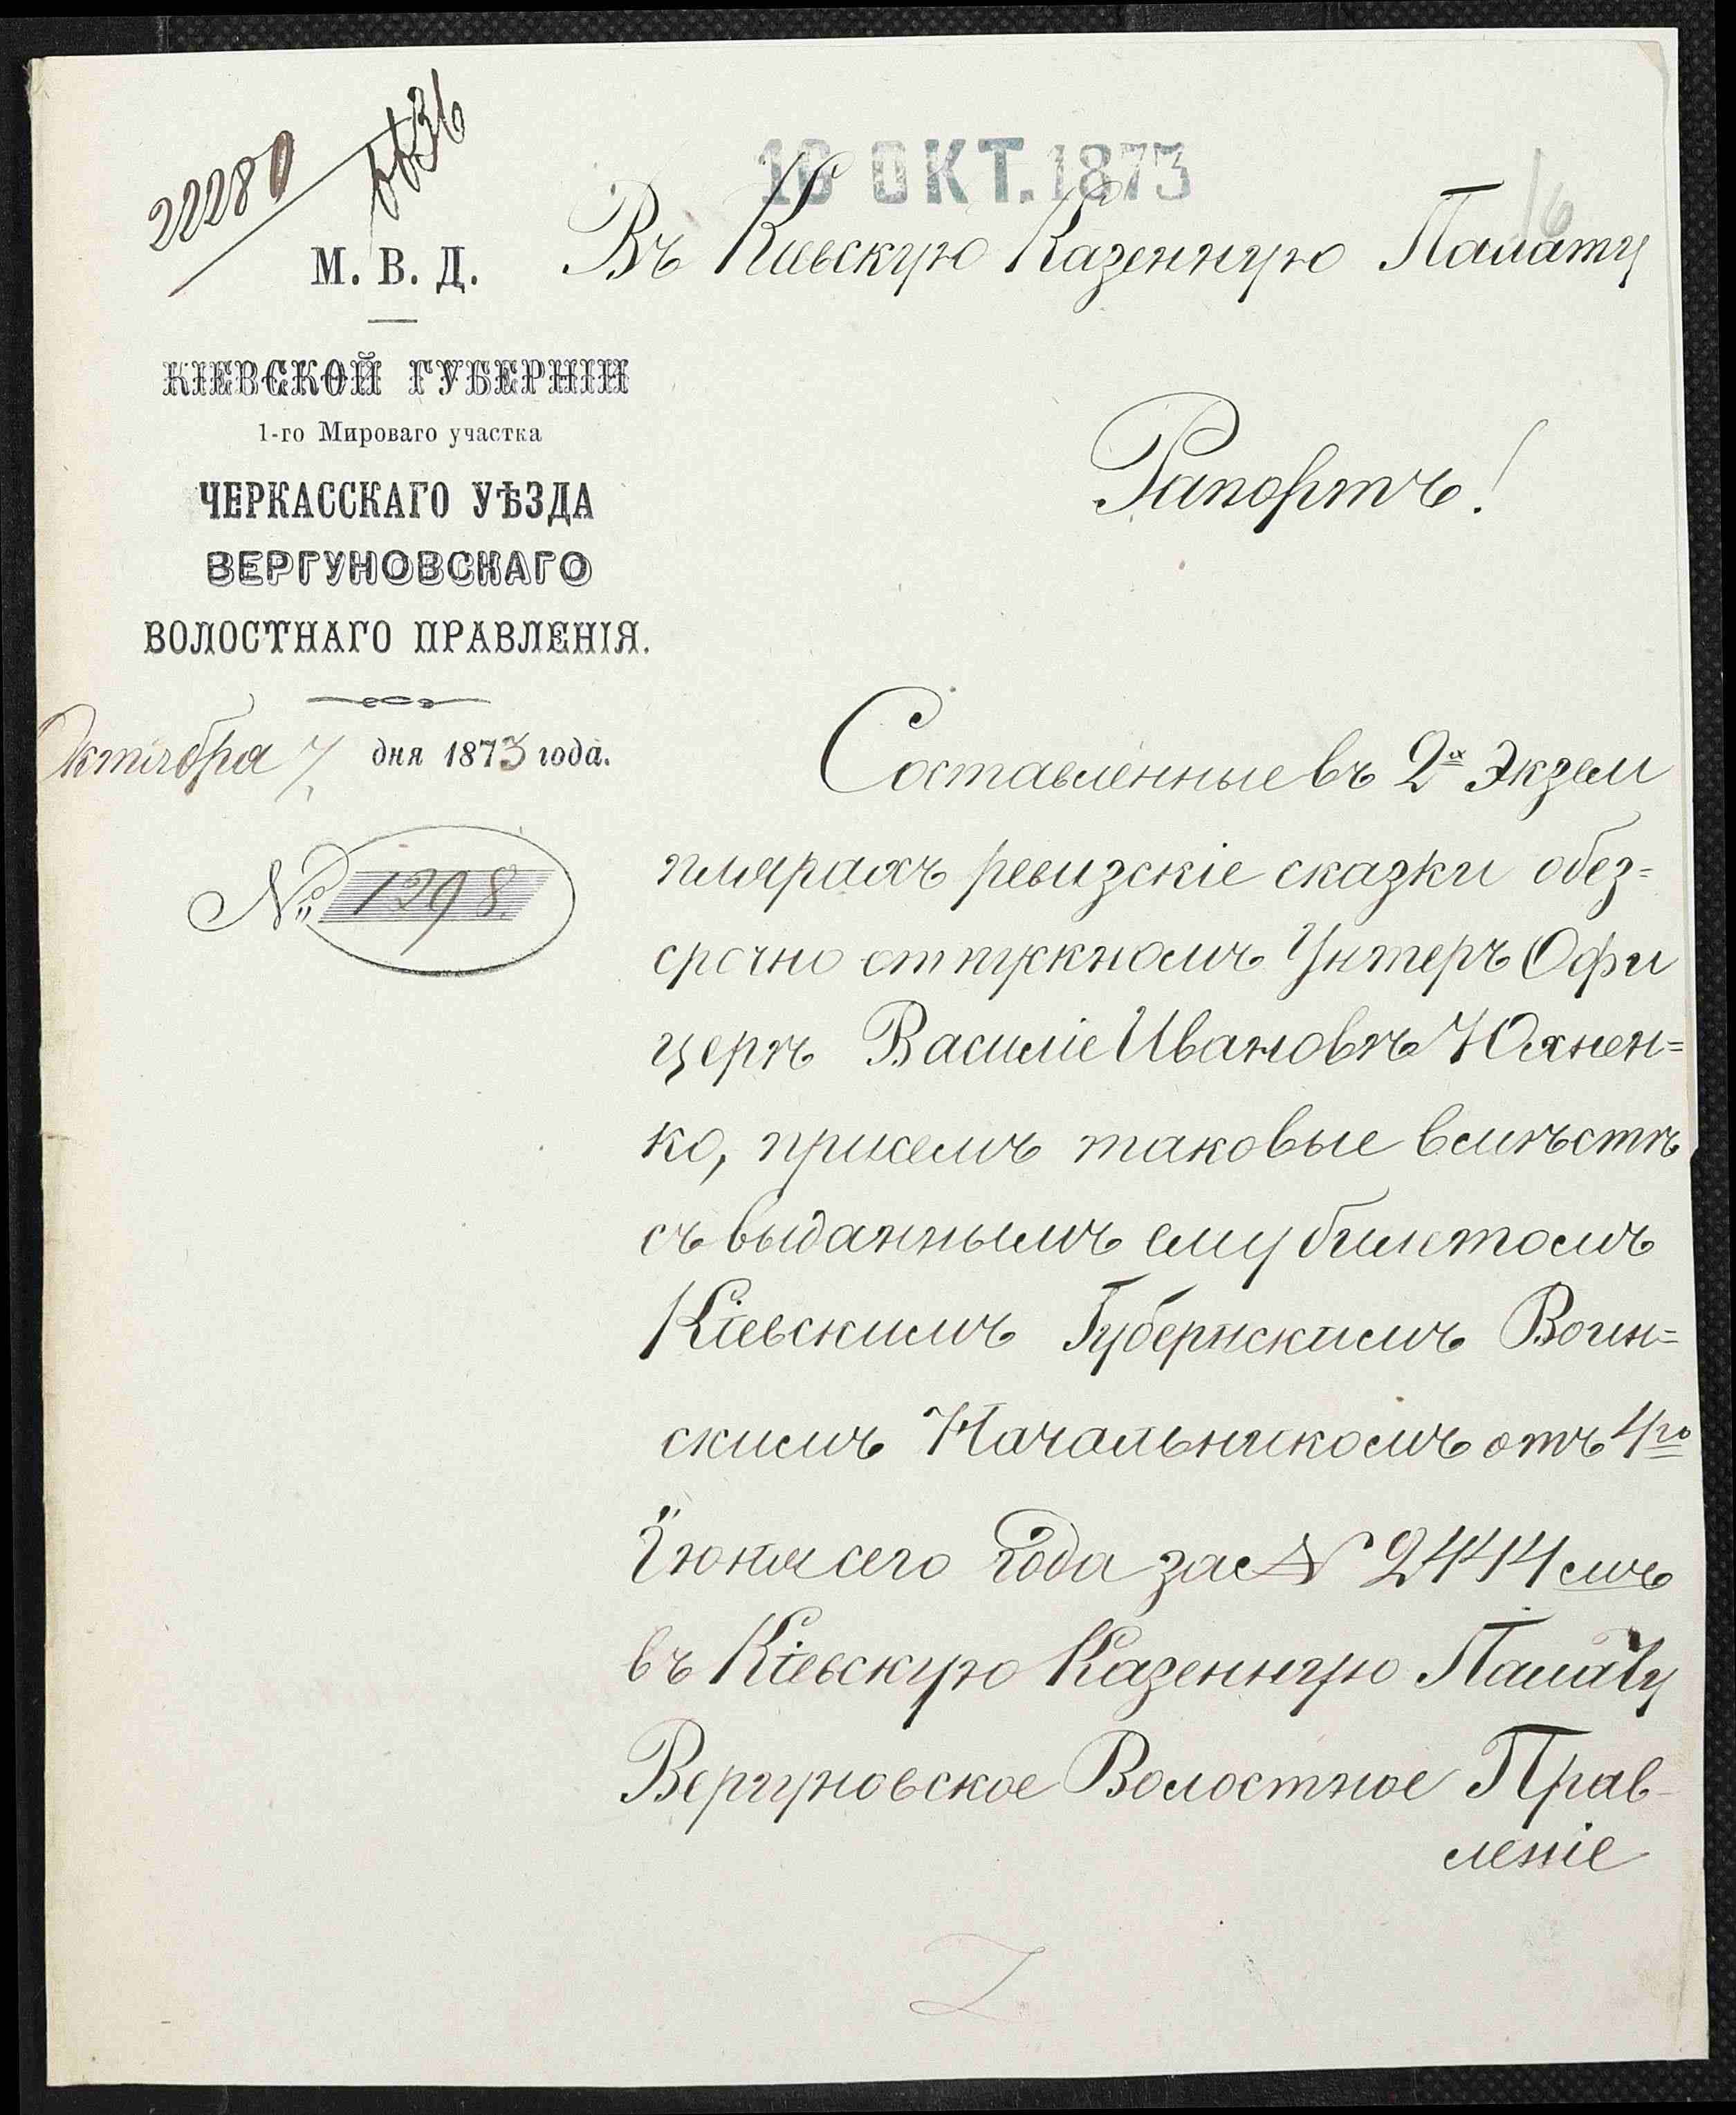 22280
16 ОКТ. 1873
16
М. В. Д.
КІЕВСКОЙ ГУБЕРНІИ
1-го Мироваго участка
ЧЕРКАССКАГО УѢЗДА
ВЕРГУНОВСКАГО
ВОЛОСТНАГО ПРАВЛЕНІЯ.
Октября 7 дня 1873 года.
№ 1298.
Въ Кіевскую Казенную Палату
Рапортъ!
Составленные въ 2х Экзем
плярахъ ревизскіе сказки обез=
срочно отпускномъ Унтеръ Офи
церѣ Василіе Ивановѣ Юхнен=
ко, приемъ таковые вмѣстѣ
съ выданнымъ ему билетомъ
Кіевскимъ Губернскимъ Воин=
скимъ Начальникомъ отъ 4го
Іюня сего года за № 2444 мъ
въ Кіевскую Казенную Палату
Вергуновское Волостное Прав-
леніе